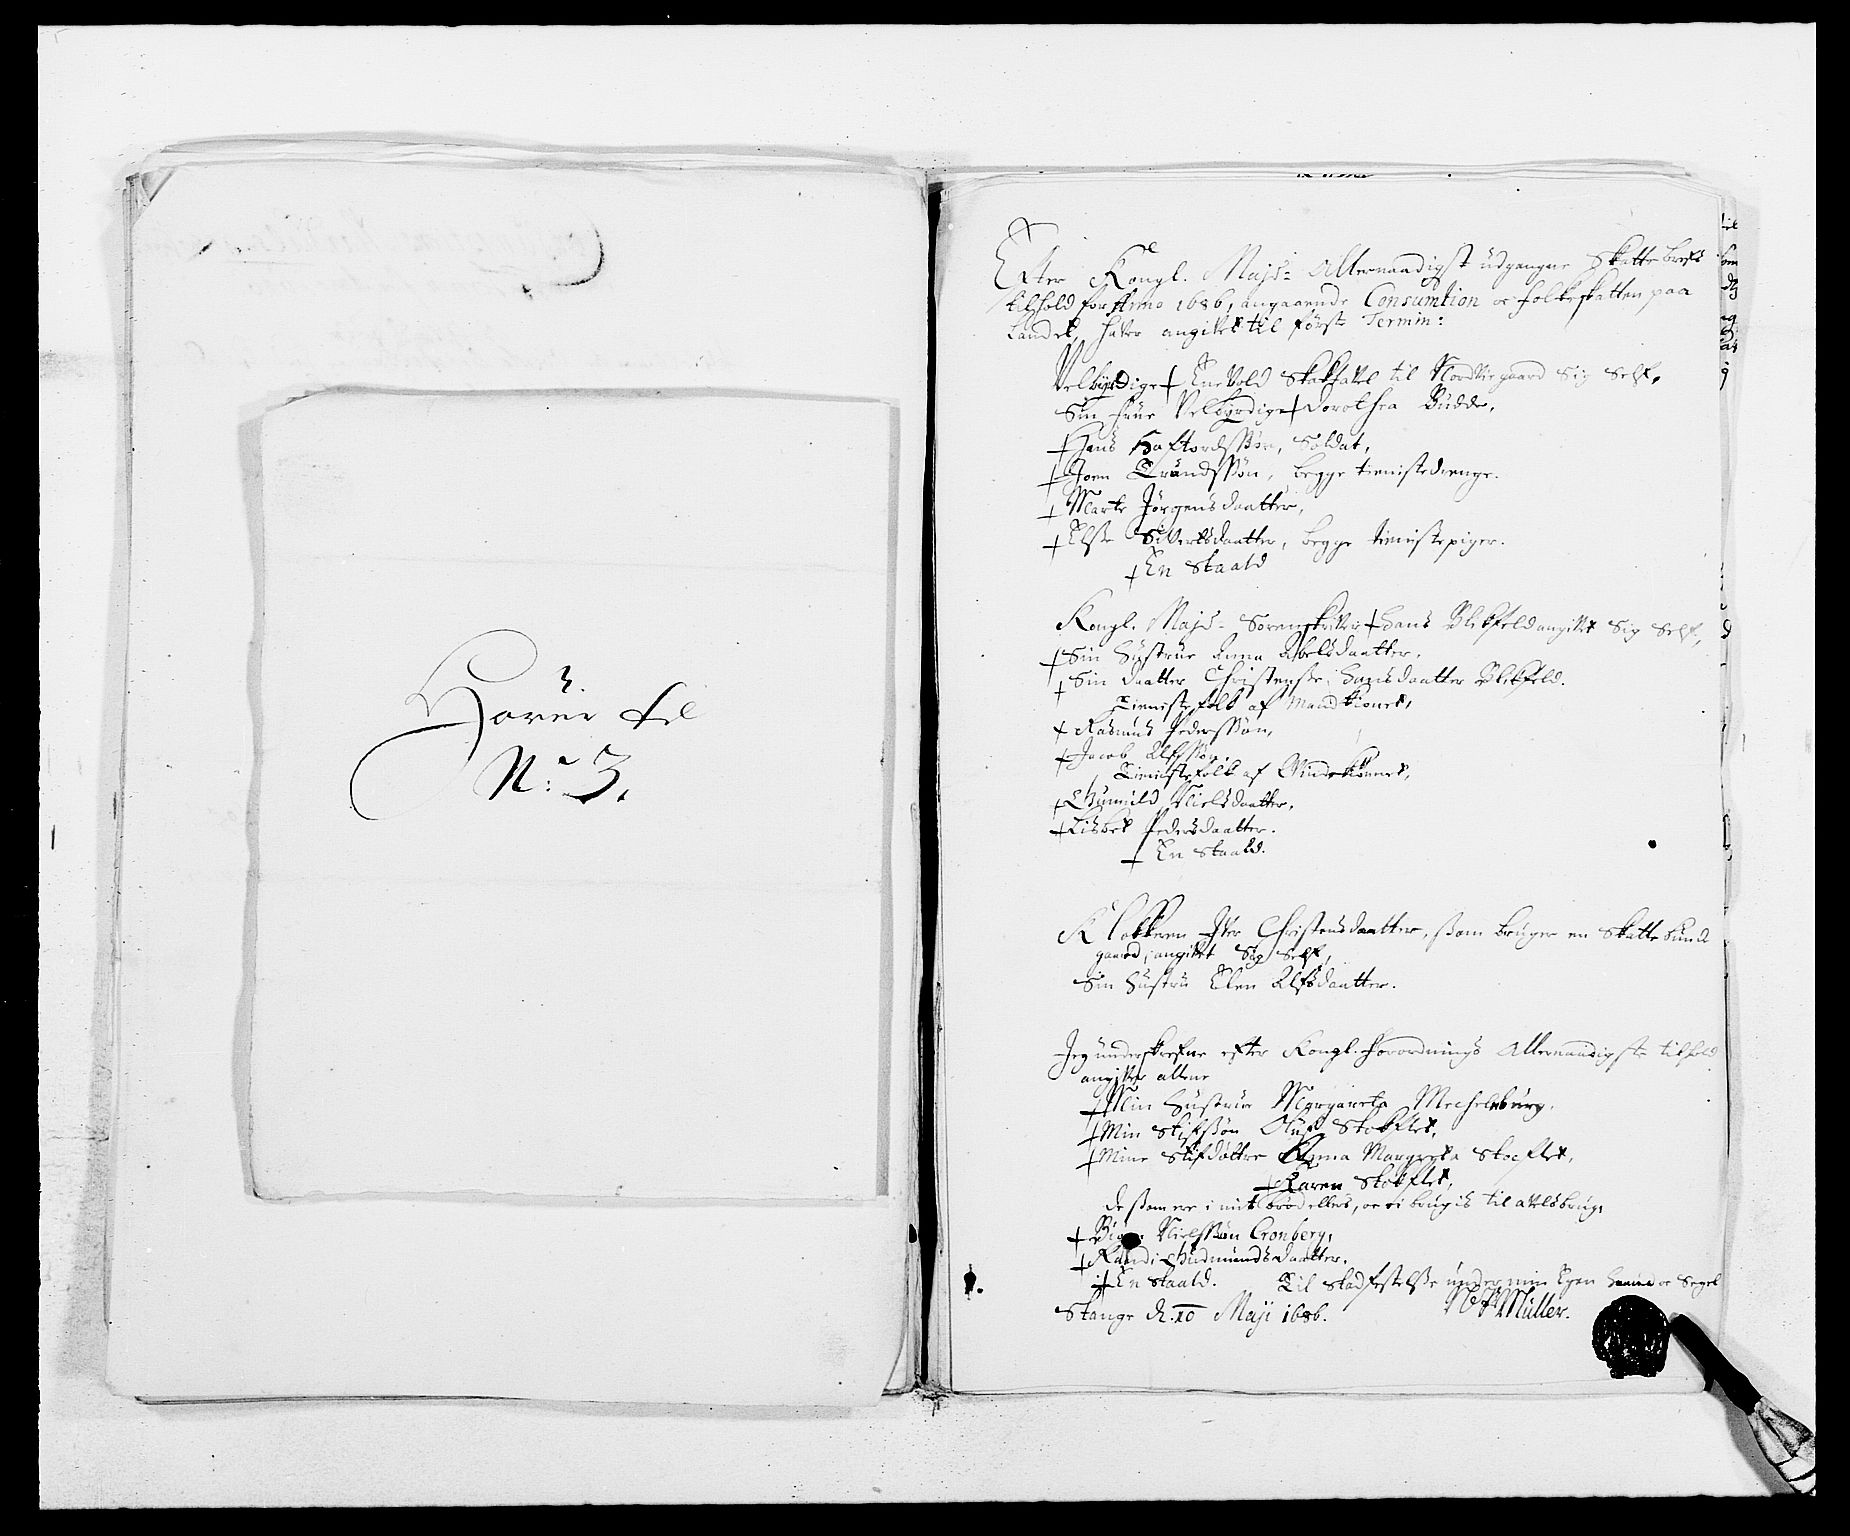 Hörer til
No: 3.
Efter Kongl. Majs: Allernaadigst udgangne Skatte brefs
tilhold for Anno 1686, angaaende Consumtion oc folkeskatten paa
Landet, hafver angifvet til förste Termin:
Velbyrdige + Enevold Stakhafvel til Nordviegaard Sig Self,
Sin frue Velbyrdige + Dorothea Budde,
+ Hans Haftordssøn, Soldat,
+ Joen Trundssøn, begge tienistedrenge.
+ Marte Jörgensdaatter,
+ Else Sivertsdaatter, begge tienistepiger.
+ En Staald
Kongl. Majs- Sorenskrifver + Hans Blikfeld angifvet Sig Self,
+ Sin Hustrue Anna Abelsdaatter,
+ Sin daatter Christense Hansdaatter Blikfeld.
Tienistefolk af Mandkionet,
+ Rasmus Pederssøn,
+ Jacob Olssøn,
Tienistefolk af Qvindekiönnet,
+ Gunnild Nielsdaatter,
+ Lisbet Pedersdaatter.
+ En Staald.
Klokkeren Iver Christensdaatter, som bruger en Skatte bunde
gaard, angifvet Sig Self,
Sin Hustru Elen Olfsdaatter.
Jeg underskrefne efter Kongl. forordnings Allernaadigste tilhold
angifver allene
+ Min Hustrue Margareta Mechelnburg,
+ Min Stifsøn Oluf Stokflet,
+ Mine Stifdöttre Anna Margreta Stocflet,
+ Karen Stokflet,
de som ere i mit bröd ellers, oc ei brugis til afvelsbrug,
+ Nielssøn Cronberg,
+ Randi Gudmundsdaatter,
+ En Staald. Til Stadfestelse under min Egen Haand oc Segel
Stange d. 10 Maji 1686. Müller.